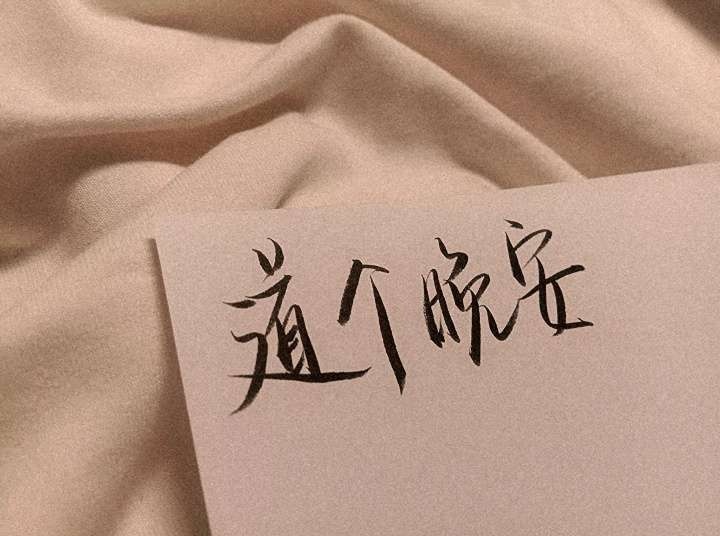 道个晚安